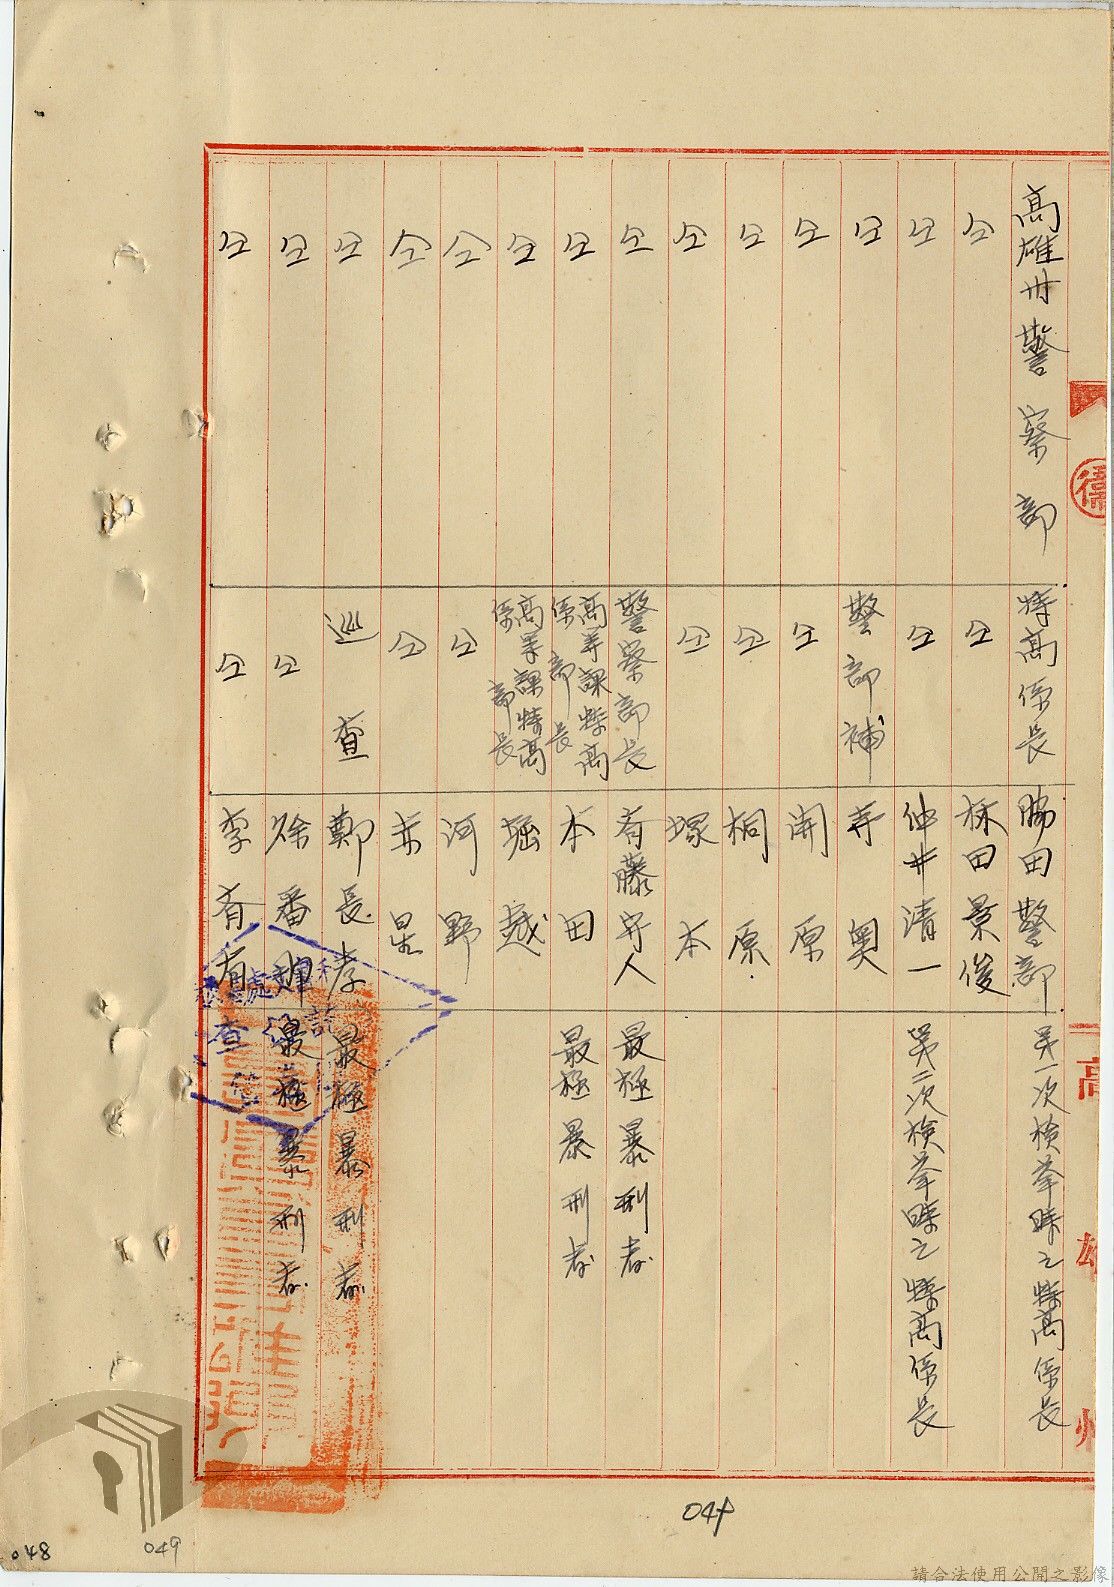 高雄州警察部 特高係長 脇田警部 第一次検挙時之特高係長
仝 仝 林田景俊
仝 仝 仲井清一 第二次検挙時之特高係長
仝 警部補 寺奥
仝 仝 開原
仝 仝 桐原
仝 仝 塚本
仝 警察部長 斉藤守人 最極暴刑者
仝 高等課特高係部長 本田 最極暴刑者
仝 高等課特高係部長 堀越
仝 仝 河野
仝 仝 赤星
仝 巡查 鄭長孝 最極暴刑者
仝 仝 徐番輝 最極暴刑者
仝 仝 李有有
高雄州
查
處
049
048
049
請合法使用公開之影像